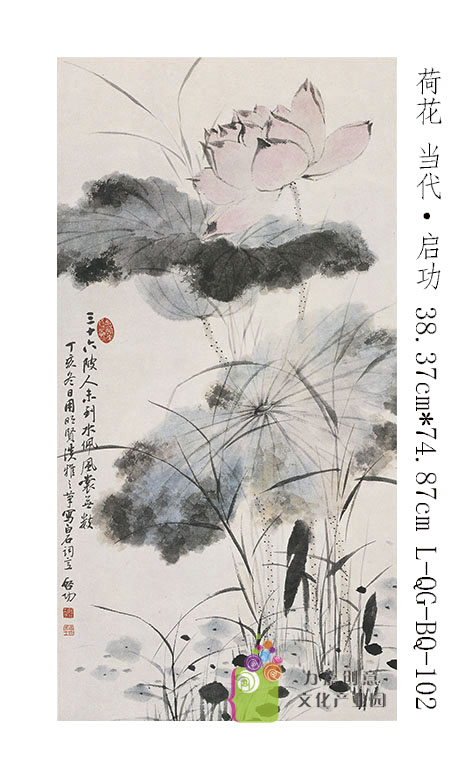 荷花 当代·启功 38.37cm*74.87cm L-QG-BQ-102
三十六陂人未到水佩風裳無數
丁亥冬日用明賢淡雅之筆寫白石詞意 啓功
文化产业园